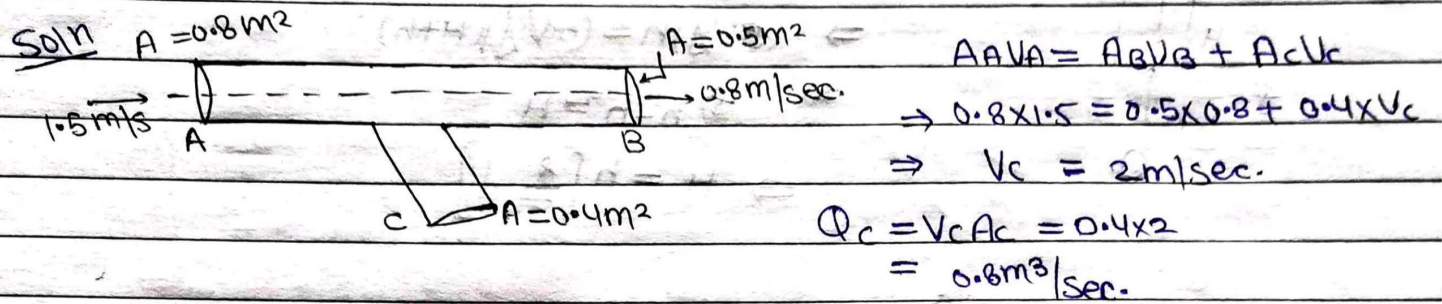 Soln A = 0.8m²
A = 0.5m²
1.5m/s
0.8m/sec.
A
B
C
A = 0.4m²
AAVA = ABVB + ACVC
⇒ 0.8×1.5 = 0.5×0.8 + 0.4×VC
⇒ VC = 2m/sec.
QC = VCAC = 0.4×2
= 0.8m³/sec.